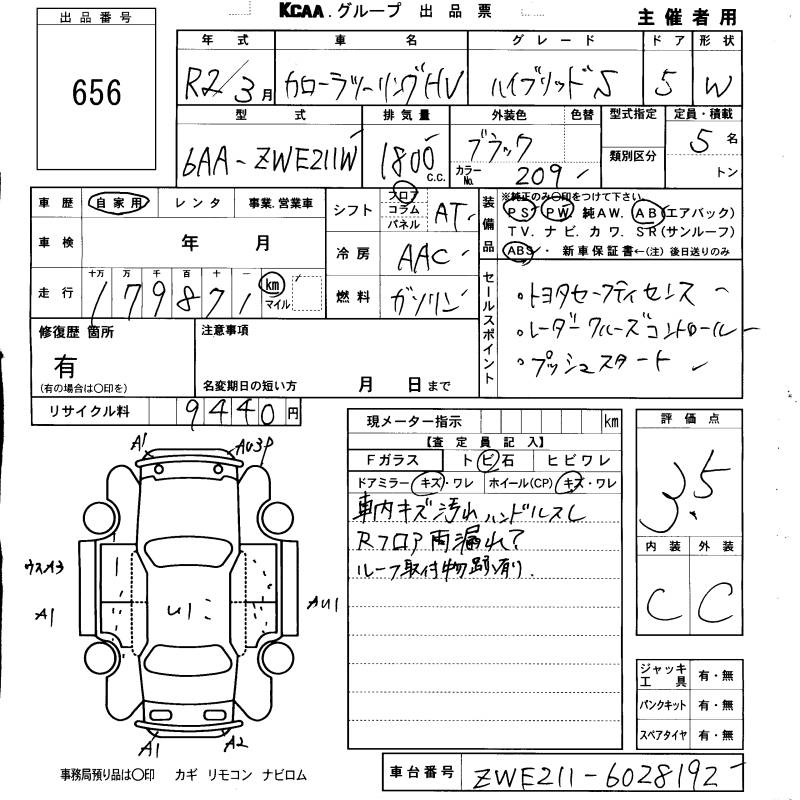 KCAA.グループ 出品票 主催者用
出品番号
656
年式 車名 グレード ドア 形状
R2/3月 カローラツーリングHV ハイブリッドS 5 W
型式 排気量 外装色 色替 型式指定 定員・積載
6AA-ZWE211W 1800 C.C. ブラック カラーNo. 209 類別区分 5名 トン
車歴 自家用 レンタ 事業.営業車
車検 年 月
走行 十万 万 千 百 十 一
179871 km マイル
シフト フロア コラム パネル AT
冷房 AAC
燃料 ガソリン
装備品 ※純正のみ○印をつけて下さい。
PS PW 純AW. AB(エアバック)
TV. ナビ. カワ. SR(サンルーフ)
ABS・ 新車保証書←(注) 後日送りのみ
セールスポイント
・トヨタセーフティセンス
・レーダークルーズコントロール
・プッシュスタート
修復歴 箇所
有
(有の場合は○印を)
注意事項
名変期日の短い方 月 日まで
リサイクル料 9440円
現メーター指示 km
【査定員記入】
Fガラス トビ石 ヒビワレ
ドアミラー キズ・ワレ ホイール(CP) キズ・ワレ
車内キズ汚れ ハンドルスレ
Rフロア雨漏れ?
ルーフ取付物跡有り.
評価点
3.5
内装 外装
C C
ジャッキ工具 有・無
パンクキット 有・無
スペアタイヤ 有・無
A1 AU3P
ウスA3
A1 U1 AU1
A1 A2
事務局預り品は○印 カギ リモコン ナビロム
車台番号 ZWE211-6028192